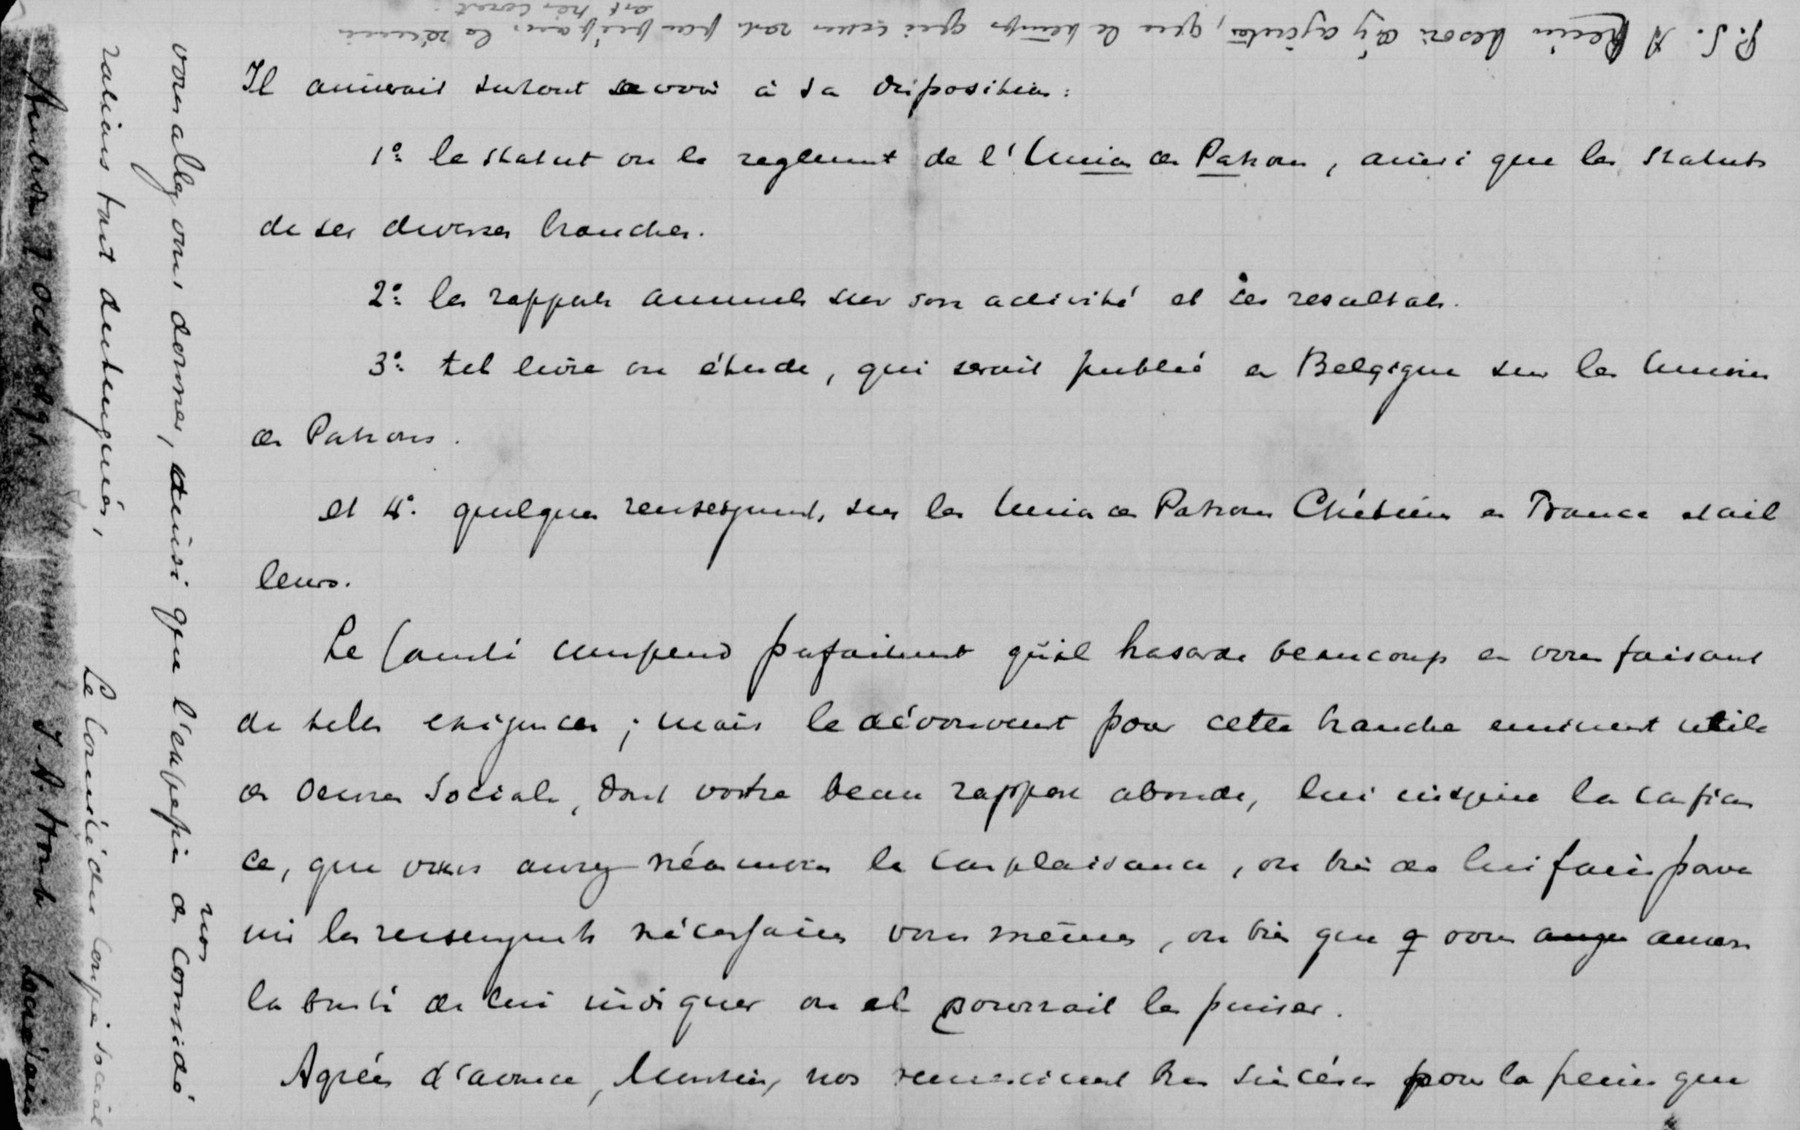 Il aimerait surtout avoir à sa disposition:
1º le statut ou le reglement de l'Union de Patrons, ainsi que les statuts
de ses diverses branches.
2º les rapports annuels sur son activité et ses resultats.
3º tel livre ou étude, qui serait publié en Belgique sur les Unions
de Patrons.
et 4º quelques renseignements, sur les Unions de Patrons Chrétiens en France et ail
leurs.
Le Comité comprend parfaitement qu'il hasarde beaucoup en vous faisant
de telles exigences; mais le dévouement pour cette branche eminemment utile
de oeuvres sociales, dont votre beau rapport abonde, lui inspire la confian
ce, que vous aurez néanmoins la complaisance, ou bien de lui faire parve
nir les renseignements nécessaires vous mêmes, ou bien que vous aurez
la bonté de lui indiquer ou il pourrait les puiser.
Agréez d'avance, Monsieur, nos remerciments très sincères pour la peine que
vous allez vous donner, ainsi que l'expression de nos considé
rations tout distinguées,
Le Comité du Congrès social
P.S. besoin d'y ajouter, que le temps qui nous reste pour préparer la réunion
est très court.